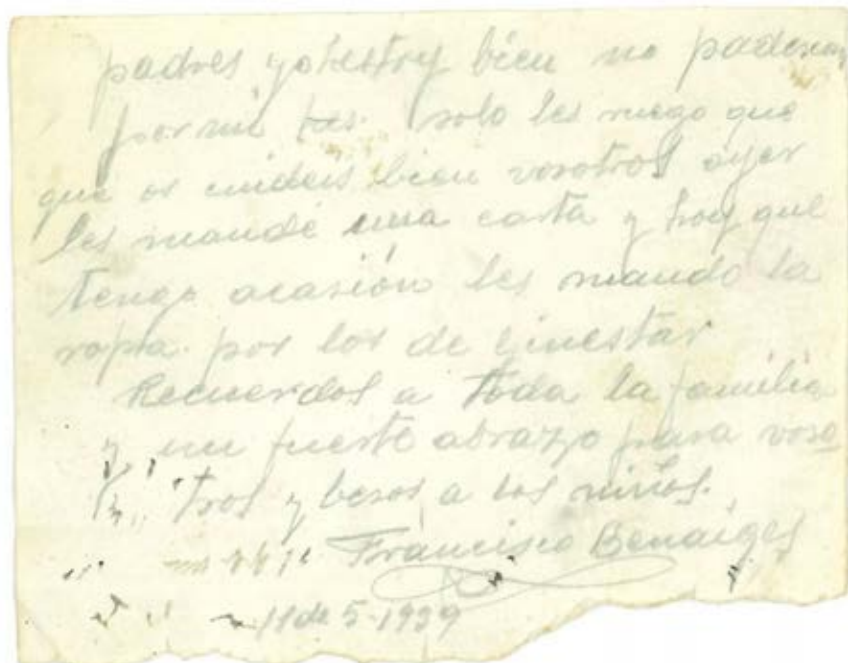 padres yo estoy bien no padezcan
por mi solo les ruego que
que os cuideis bien vosotros ayer
les mandé una carta y hoy que
tengo acasión les mando la
ropa por los de Ginestar
Recuerdos a toda la familia
y un fuerte abrazo para voso
tros y besos a los niños.
Francisco Benaiges
11 de 5-1939